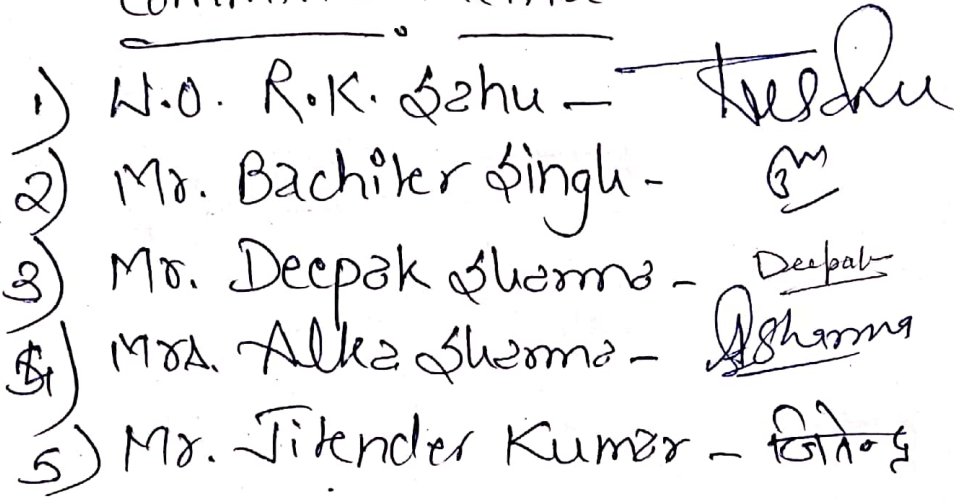 1) W.O. R.K. Sahu -
2) Mr. Bachiter Singh -
3) Mr. Deepak Sharma - Deepak
4) Mrs. Alka Sharma - ASharma
5) Mr. Jitender Kumar - जितेन्द्र